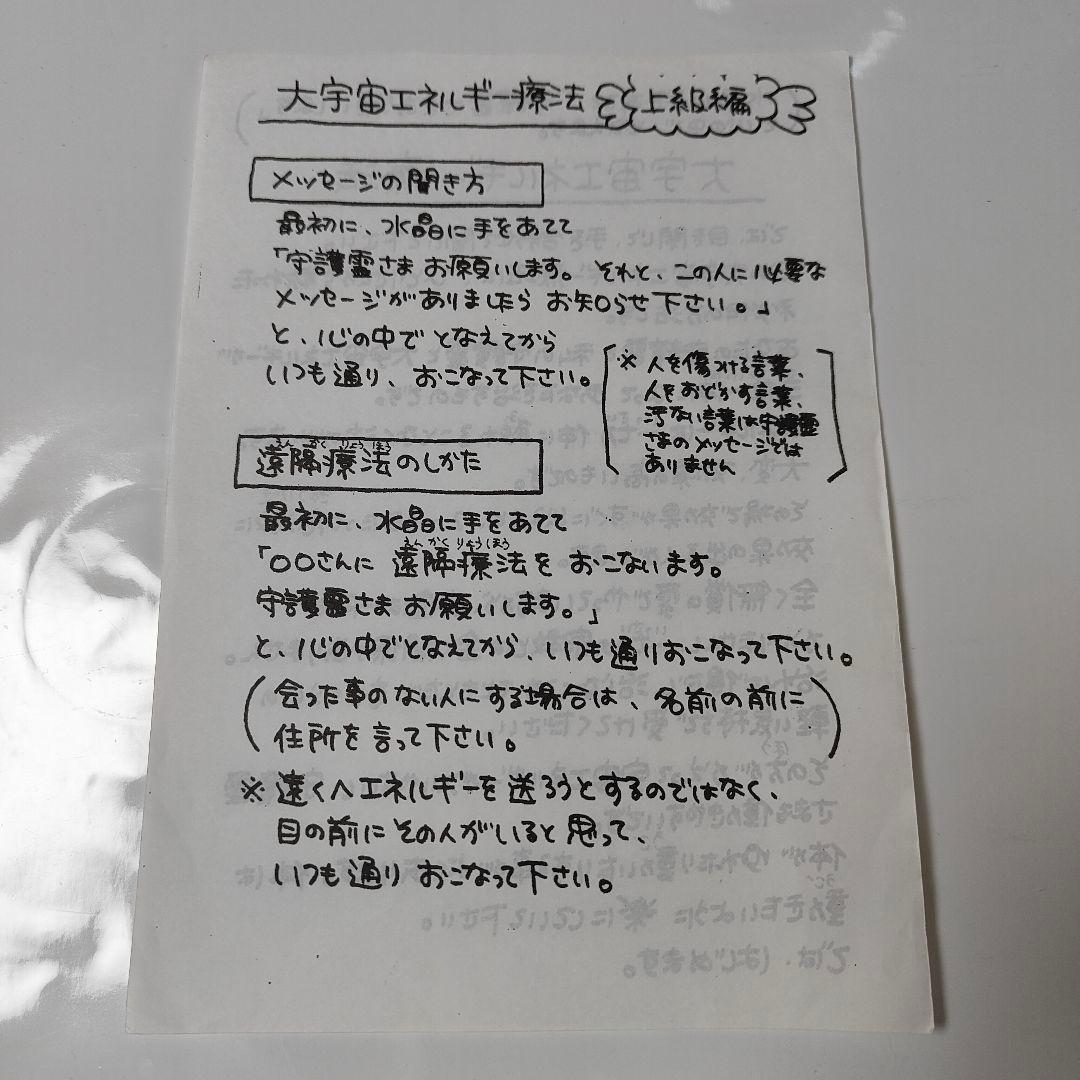 大宇宙エネルギー療法 上級編
メッセージの聞き方
最初に、水晶に手をあてて
「守護霊さま お願いします。それと、この人に必要な
メッセージがありましたら お知らせ下さい。」
と、心の中で となえてから
いつも通り、おこなって下さい。
※ 人を傷つける言葉、
人をおどかす言葉、
汚ない言葉は守護霊
さまのメッセージでは
ありません
えん かく りょう ほう
遠隔療法のしかた
最初に、水晶に手をあてて
えん かく りょう ほう
「○○さんに 遠隔療法を おこないます。
守護霊さま お願いします。」
と、心の中でとなえてから、いつも通りおこなって下さい。
(会った事のない人にする場合は、名前の前に
住所を言って下さい。)
※ 遠くへエネルギーを送ろうとするのではなく、
目の前にその人がいると思って、
いつも通り おこなって下さい。